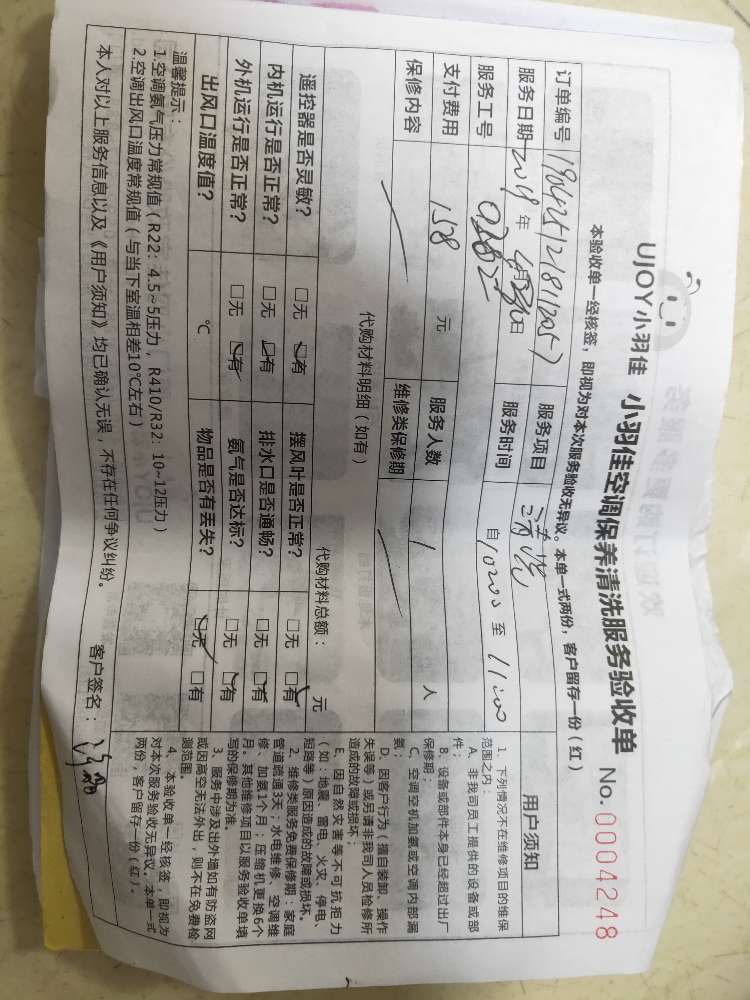 UJOY小羽佳 小羽佳空调保养清洗服务验收单 No. 0004248
本验收单一经核签，即视为对本次服务验收无异议。本单一式两份，客户留存一份（红）
订单编号 服务项目 清洗
服务日期 2019年4月30日 服务时间 自10:00至11:00
服务工号 0282
支付费用 158 元 服务人数 1 人
保修内容 维修类保修期
代购材料明细（如有） 代购材料总额： 元
遥控器是否灵敏？ □无 □有 摆风叶是否正常？ □无 □有
内机运行是否正常？ □无 □有 排水口是否通畅？ □无 □有
外机运行是否正常？ □无 □有 氨气是否达标？ □无 □有
出风口温度值？ ℃ 物品是否有丢失？ □无 □有
温馨提示：
1.空调氨气压力常规值（R22：4.5~5压力，R410/R32：10~12压力）
2.空调出风口温度常规值（与当下室温相差10℃左右）
本人对以上服务信息以及《用户须知》均已确认无误，不存在任何争议纠纷。 客户签名：
用户须知
1、下列情况不在维修项目的维保
范围之内：
A、非我司员工提供的设备或部
件；
B、设备或部件本身已经超过出厂
保修期；
C、空调空机加氨或空调内部漏
氨；
D、因客户行为（擅自装卸、操作
失误等）或另请非我司人员检修所
造成的故障或损坏；
E、因自然灾害等不可抗拒力
（如：地震、雷电、火灾、停电、
短路等）原因造成的故障或损坏。
2、维修类服务免费保修期：家庭
管道疏通3天；水电维修、空调维
修、加氨1个月；压缩机更换6个
月。其他维修项目以服务验收单填
写的保修期为准。
3、服务中涉及出外墙如有防盗网
或因高空无法外出，则不在免费检
测范围。
4、本验收单一经核签，即视为
对本次服务验收无异议。本单一式
两份，客户留存一份（红）。